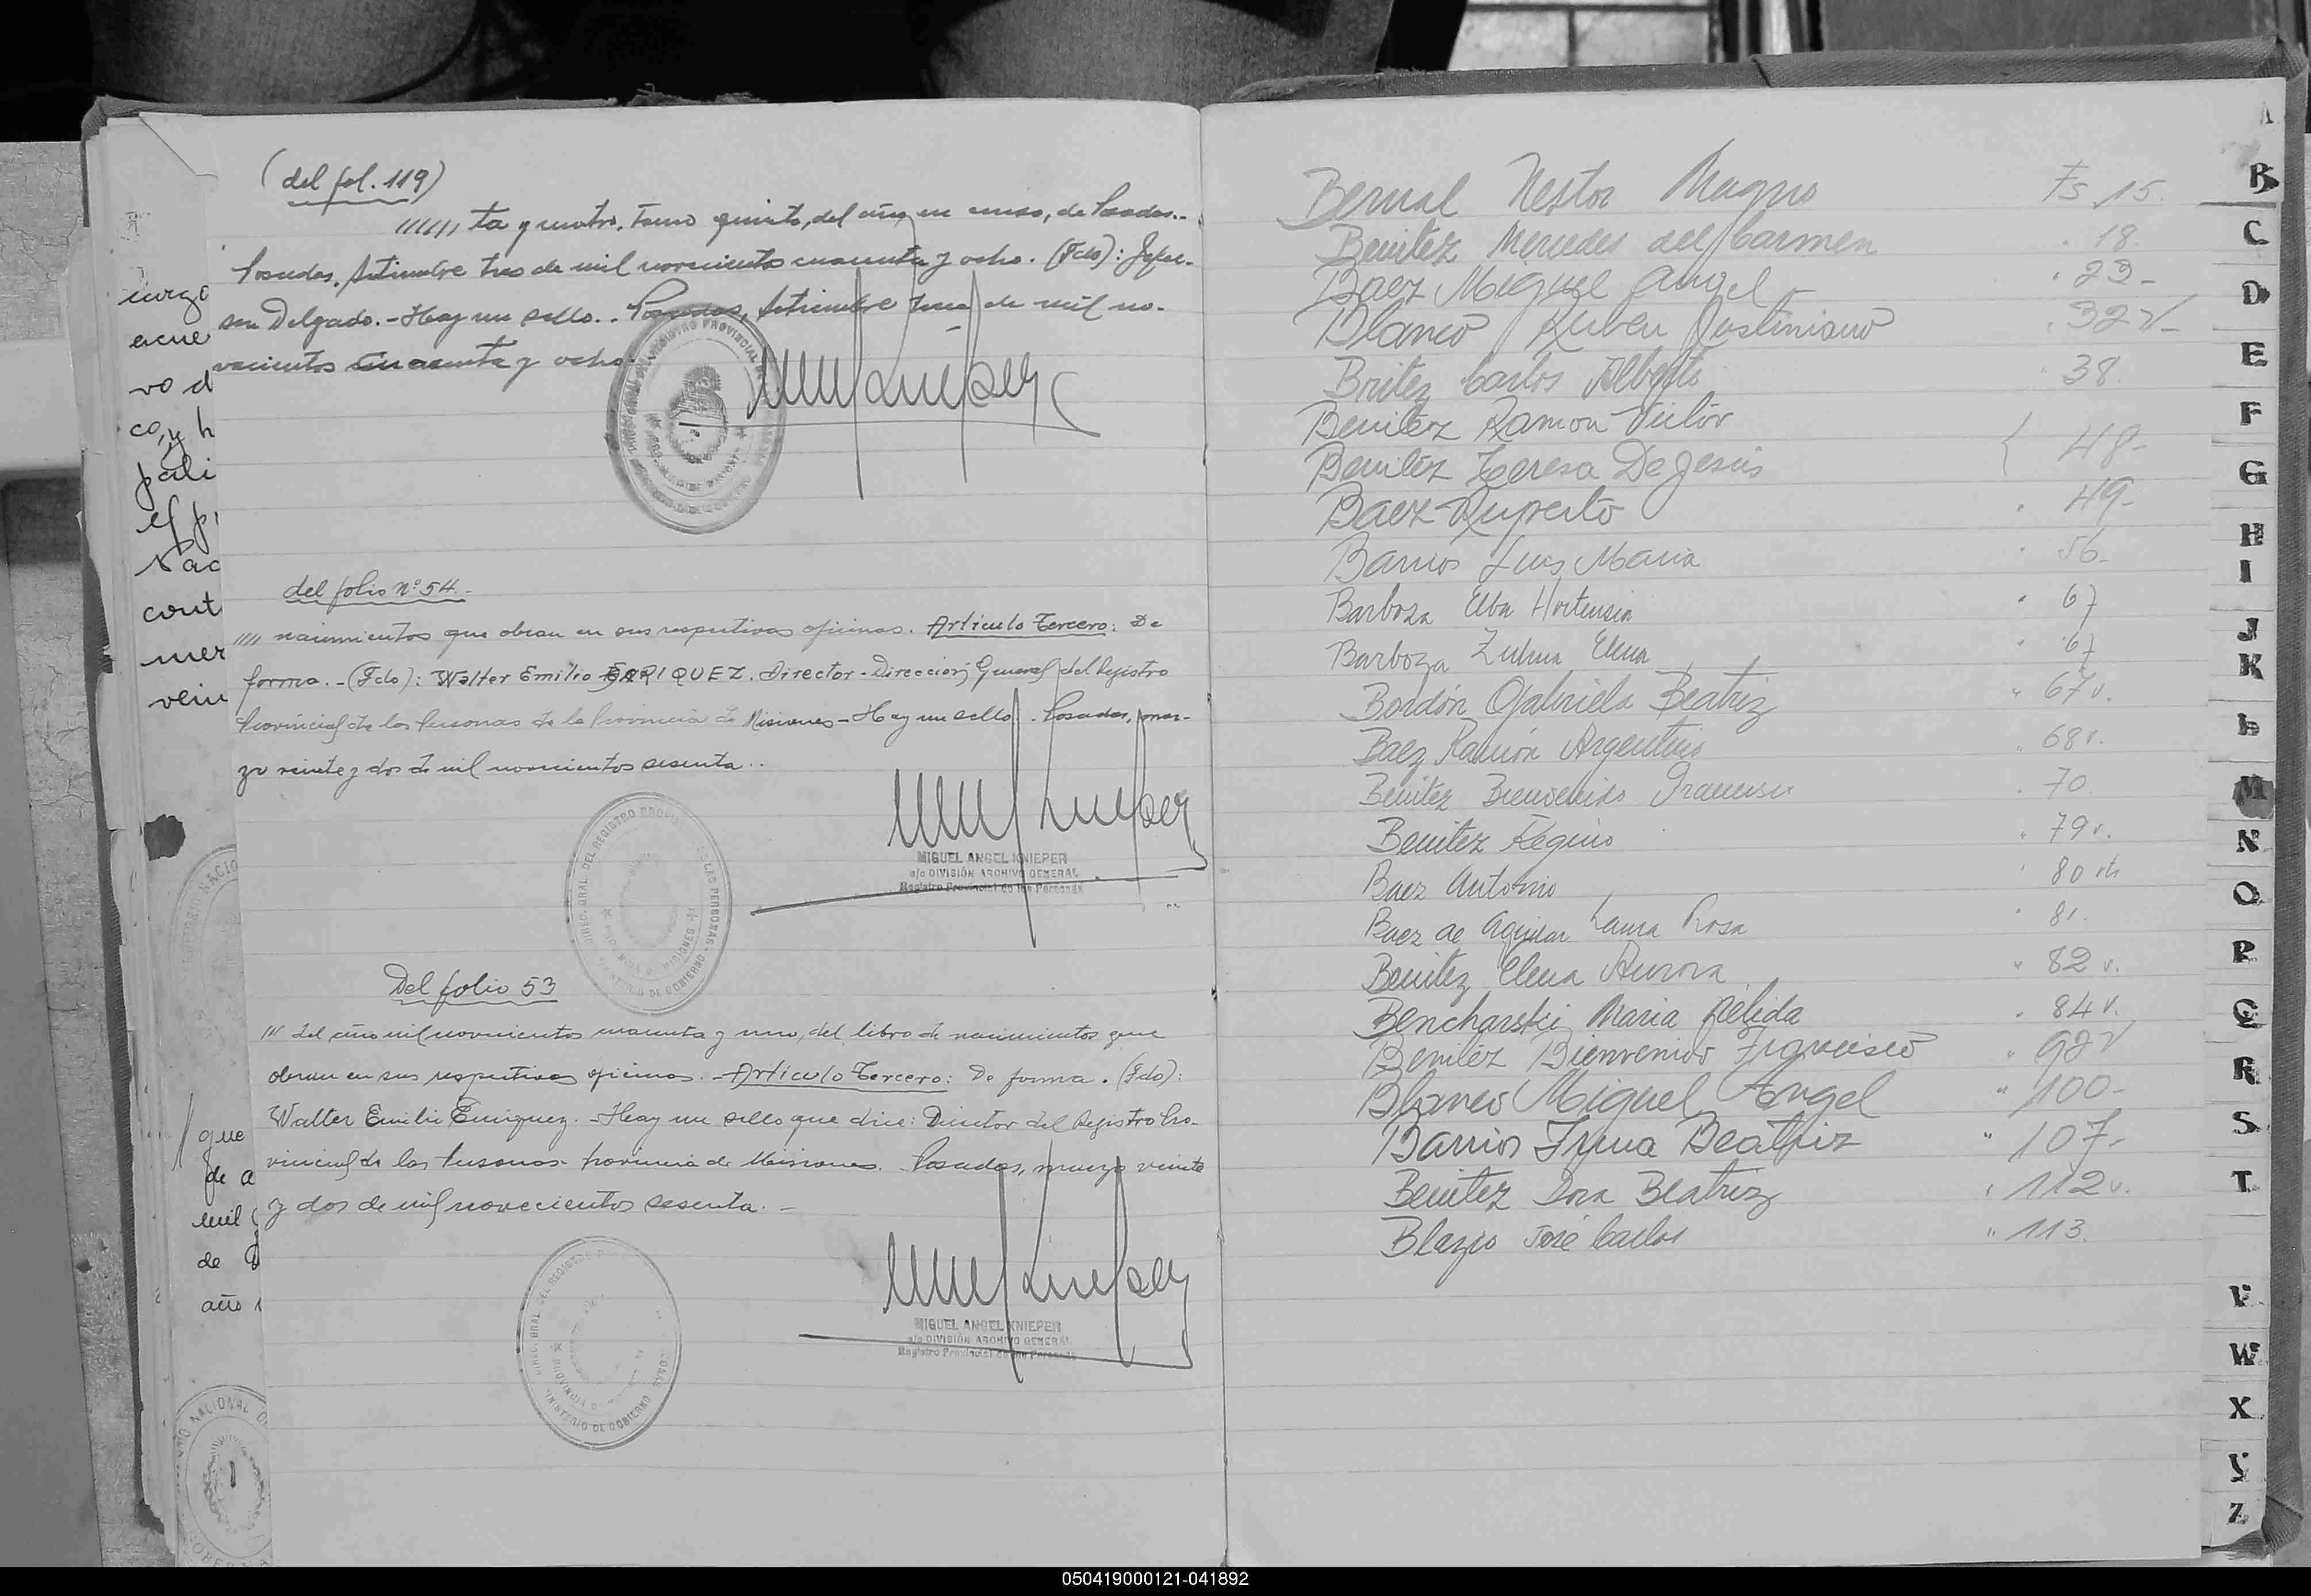 (del fol. 119)
////// ta y cuatro, tomo quinto, del año en curso, de Posadas.-
Posadas, Setiembre tres de mil novecientos cuarenta y ocho. (Fdo): Jeffer-
son Delgado. - Hay un sello. - Posadas, Setiembre de mil no-
vecientos cuarenta y ocho.
del folio nº 54.-
//// nacimientos que obran en sus respectivas oficinas. Artículo Tercero: De
forma. - (Fdo): Walter Emilio ENRIQUEZ. Director - Dirección General del Registro
Provincial de las Personas de la Provincia de Misiones - Hay un sello. - Posadas, mar-
zo veinte y dos de mil novecientos sesenta..
MIGUEL ANGEL KNIEPER
a/c DIVISIÓN ARCHIVO GENERAL
Registro Provincial de las Personas
Del folio 53
/// del año mil novecientos cuarenta y uno, del libro de nacimientos que
obran en sus respectivas oficinas. - Artículo Tercero: De forma. (Fdo):
Walter Emilio Enriquez. - Hay un sello que dice: Director del Registro Pro-
vincial de las Personas - Provincia de Misiones. Posadas, marzo veinte
y dos de mil novecientos sesenta. -
MIGUEL ANGEL KNIEPER
a/c DIVISIÓN ARCHIVO GENERAL
Registro Provincial de las Personas
curso
acue
vo d
co, y h
pali
el pr
Nac
cont
mer
vein
que
de a
mil
de
año
Bernal Nestor Magno Fs 15.
Benitez Mercedes del Carmen " 18.
Baez Miguel Angel - " 23-
Blanco Ruben Justiniano " 32v-
Britez Carlos Alberto " 38.
Benitez Ramon Victor
Benitez Teresa De Jesús { 48-
Baez Ruperto " 49-
Barrios Luis Maria " 56-
Barboza Elba Hortensia " 67
Barboza Zulma Elena " 67
Bordón Gabriela Beatriz " 67v.
Baez Ramón Argentino " 68v.
Benitez Bienvenido Francisco " 70
Benitez Regino " 79v.
Baez Antonio " 80 vta
Baez de Aguilar Laura Rosa " 81.
Benitez Elena Aurora " 82 v.
Bencharski Maria Nélida " 84 v.
Benitez Bienvenido Francisco " 92v
Blanco Miguel Angel " 100-
Barrios Irma Beatriz " 107-
Benitez Dora Beatriz " 112v.
Blazio José Carlos " 113.
A
B
C
D
E
F
G
H
I
J
K
L
M
N
O
P
Q
R
S
T
V
W
X
Y
Z
050419000121-041892